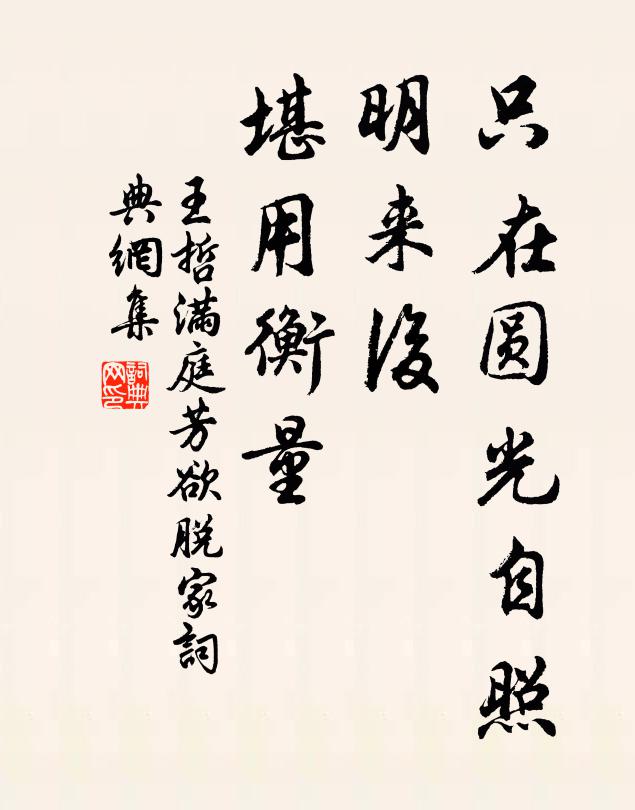 只在圆光自照
明来后
堪用衡量
王哲满庭芳欲脱家詞
典網集
詞典网印